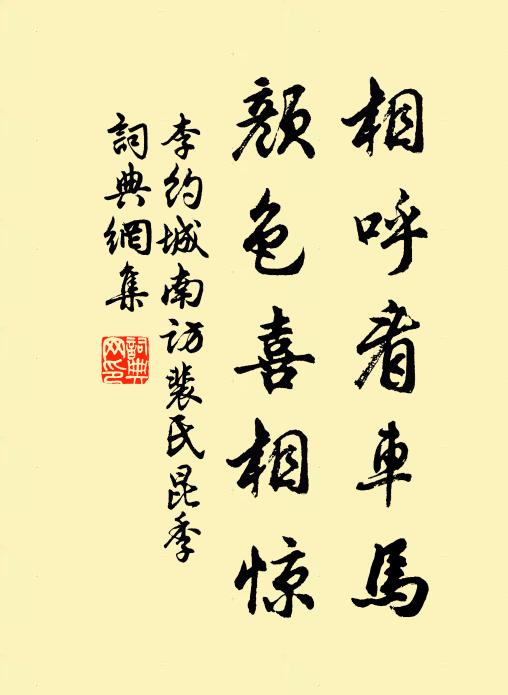 相呼看車馬
顔色喜相惊
李約城南访裴氏昆季
詞典網集
詞典网印